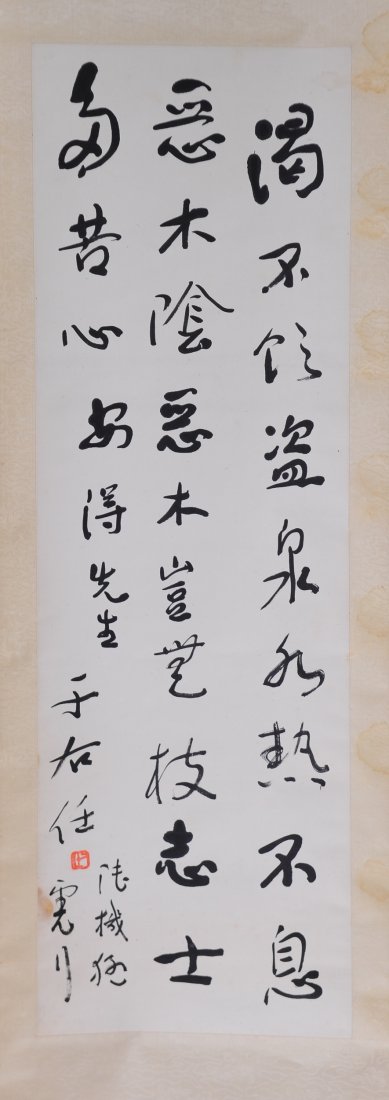 渴不飲盜泉水熱不息
惡木陰惡木豈無枝志士
多苦心
安得先生
于右任
陸機猛
虎行